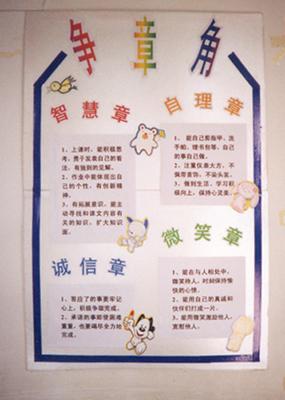 争章角
智慧章
1、上课时，能积极思
考，勇于发表自己的看
法，有独到的见解。
2、作业中能体现出自
己的个性，有创新精
神。
3、有拓展意识，能主
动寻找和课文内容有
关的知识，扩大知识
面。
自理章
1、能自己剪指甲、洗
手帕、理书包等，自己
的事自己做。
2、注重仪表大方，不
佩带首饰，不染头发。
3、做到生活、学习积
极向上，保持心灵美。
诚信章
1、答应了的事要牢记
心上，积极争取完成。
2、承诺的事即使困难
重重，也要竭尽全力始
完成。
微笑章
1、能在与人相处中，
微笑待人，时刻保持愉
快的心情。
2、能用自己的真诚和
伙伴们打成一片。
3、能用微笑激励他人，
宽慰他人。